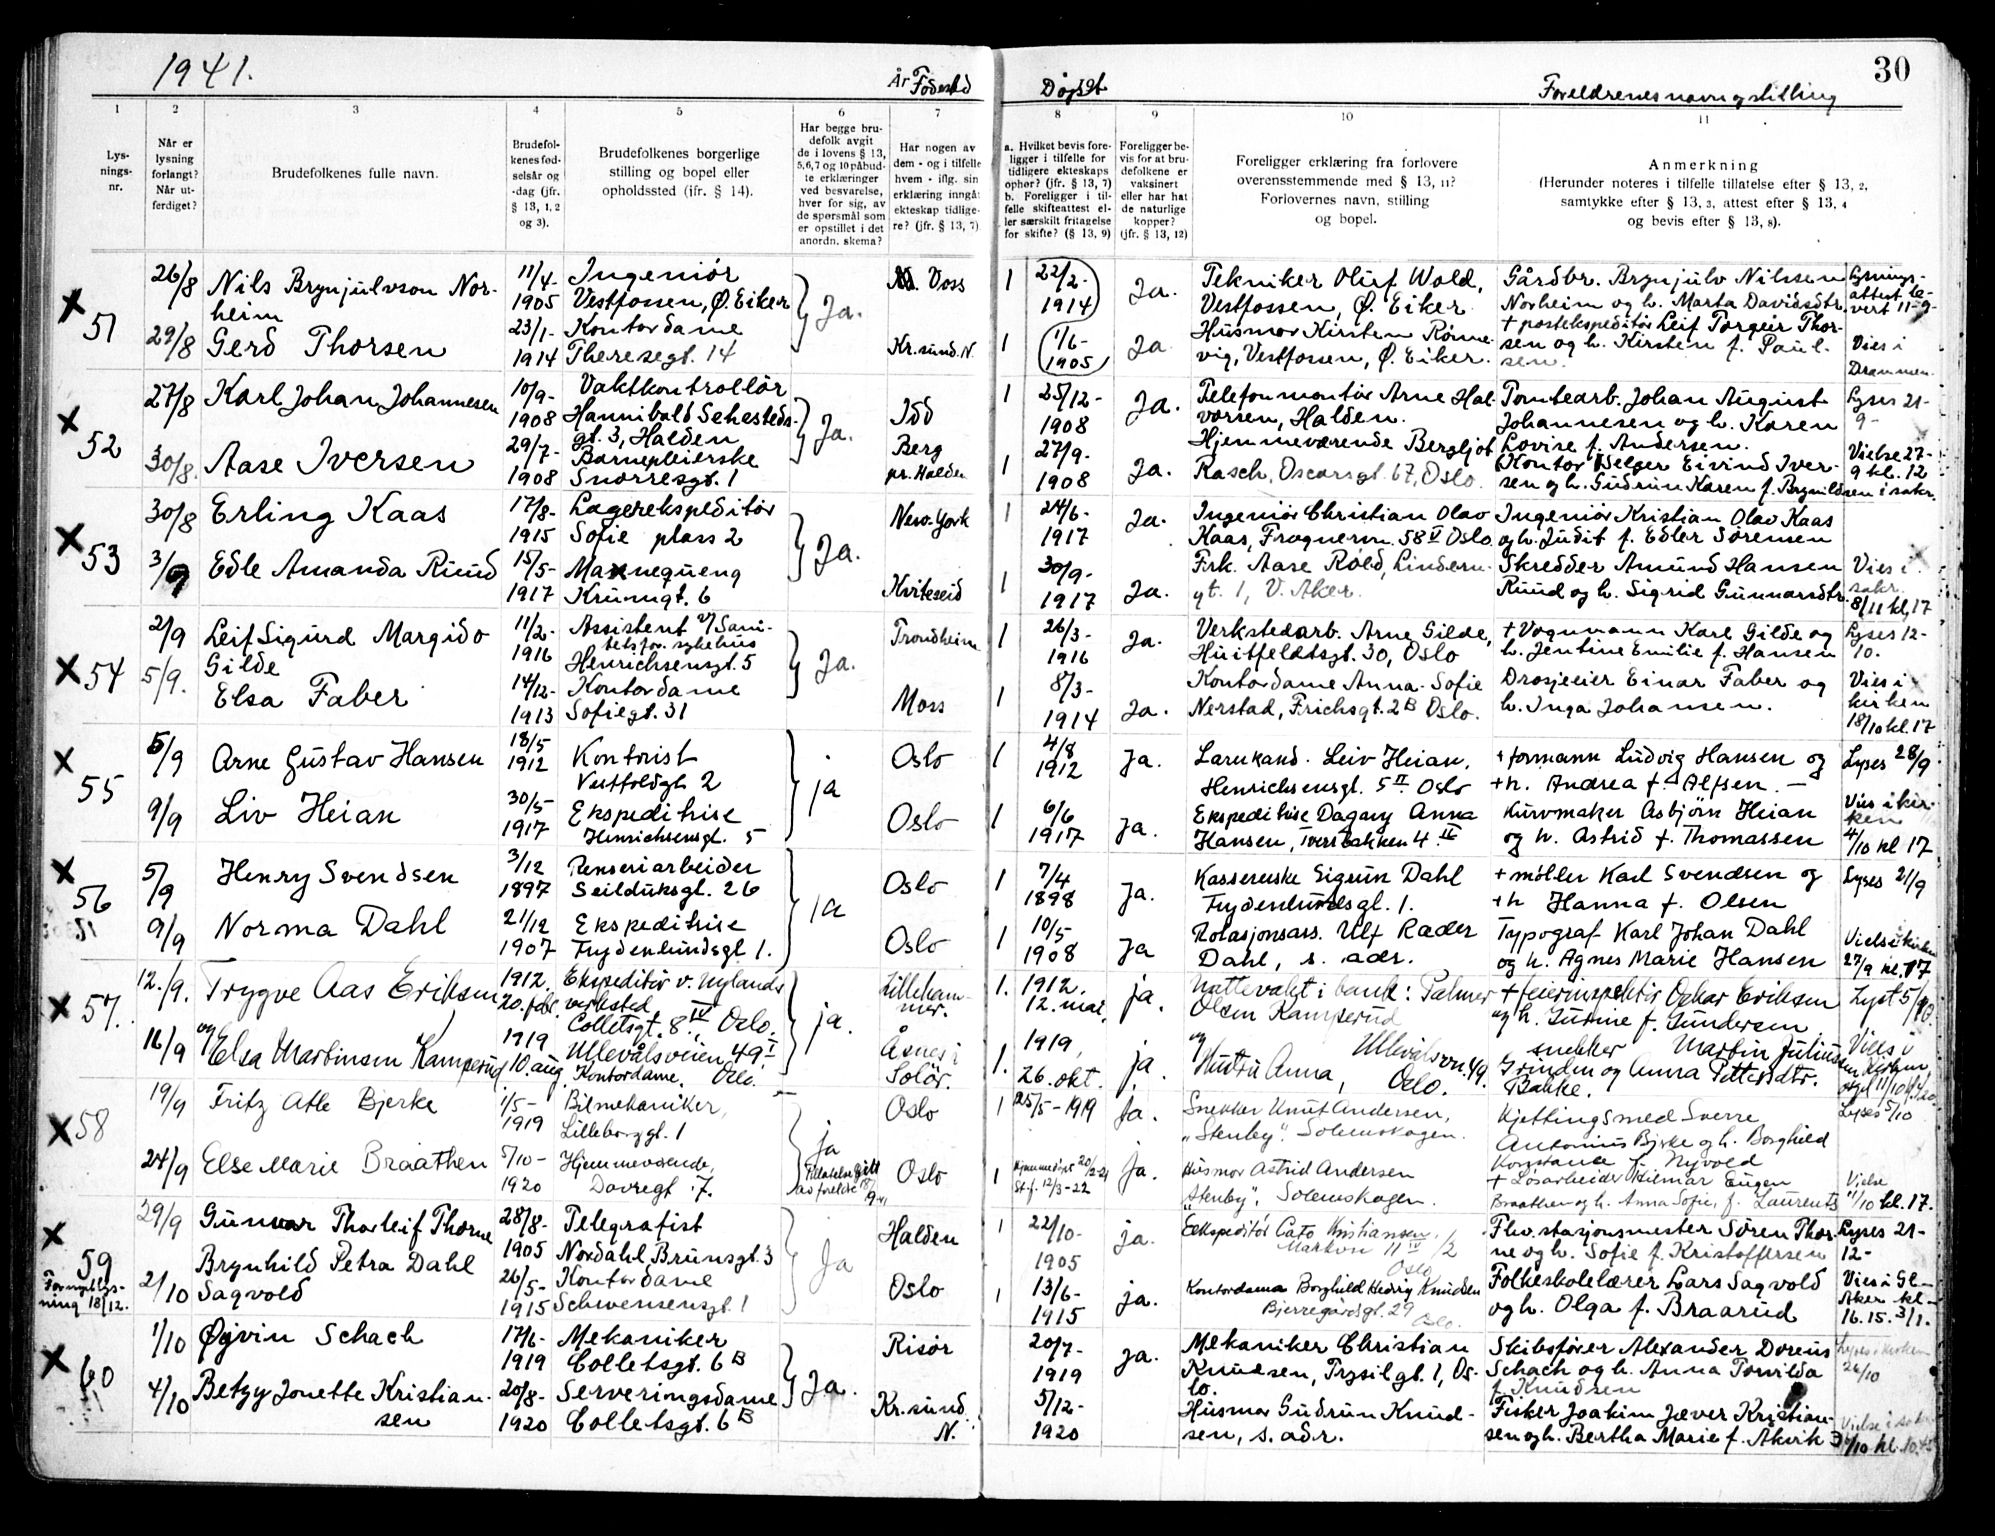 1941.
År Fødested
Døpt
Foreldrenes navn og stilling
30
1
2
3
4
5
6
7
8
9
10
11
Lys-
nings-
nr.
Når er
lysning
forlangt?
Når ut-
ferdiget?
Brudefolkenes fulle navn.
Brudefol-
kenes fød-
selsår og
-dag (jfr.
§ 13, 1, 2
og 3).
Brudefolkenes borgerlige
stilling og bopel eller
opholdssted (jfr. § 14).
Har begge bru-
defolk avgit
de i lovens § 13,
5,6,7 og 10 påbud-
te erklæringer
ved besvarelse,
hver for sig, av
de spørsmål som
er opstillet i det
anordn. skema?
Har nogen av
dem - og i tilfelle
hvem - iflg. sin
erklæring inngåt
ekteskap tidlige-
re? (jfr. § 13, 7)
a. Hvilket bevis fore-
ligger i tilfelle for
tidligere ekteskaps
ophør? (jfr. § 13, 7)
b. Foreligger i til-
felle skifteattest el-
ler særskilt fritagelse
for skifte? (§ 13, 9)
Foreligger be-
vis for at bru-
defolkene er
vaksinert
eller har hat
de naturlige
kopper?
(jfr. § 13, 12)
Foreligger erklæring fra forlovere
overensstemmende med § 13, 11?
Forlovernes navn, stilling
og bopel.
Anmerkning
(Herunder noteres i tilfelle tillatelse efter § 13, 2,
samtykke efter § 13, 3, attest efter § 13, 4
og bevis efter § 13, 8).
51
26/8 Nils Brynjulvson Nor-
heim
11/4-
1905
Ingeniør
Vestfossen, Ø. Eiker
Ja.
Voss
1 22/2-
1914
Ja.
Tekniker Oluf Wold,
Vestfossen, Ø. Eiker
Gårdbr. Brynjulv Nilssen
Norheim og h. Marta Davidsdtr.
Lysnings-
attest le-
vert 11-9-
29/8 Gerd Thorsen
23/1-
1914
Kontordame
Theresegt. 14
Kr.sund N.
1 1/6-
1905
Ja
Husmor Kirsten Rønne-
vig, Vestfossen, Ø. Eiker.
+ postekspeditør Leif Torgeir Thor-
sen og h. Kirsten f. Paul-
sen.
Vies i
Drammen
52
27/8 Karl Johan Johannesen
10/9-
1908
Vaktkontrollør
Hannibald Sehesteds-
gt. 3, Halden
Ja.
Idd
1 25/12-
1908
Ja.
Telefonmontør Arne Hal-
vorsen, Halden.
Tomtearb. Johan August
Johannesen og h. Karen
Lovise f. Andersen.
Lyses 21-
9-
30/8. Aase Iversen
29/7-
1908
Barnepleierske
Snorresgt. 1
Berg
pr. Halden
1 27/9-
1908
Ja.
Hjemmeværende Bergljot
Rasch, Oscarsgt 67, Oslo.
Kontor Selger Eivind Iver-
sen og h. Gudrun Karen f. Brynildsen
Vielse 27-
9 kl. 12
i sakr.
53
30/8 Erling Kaas
17/8-
1915
Lagerekspeditør
Sofie plass 2
Ja.
New-York
1 24/6-
1917
Ja.
Ingeniør Christian Olav
Kaas, Frognerv. 58 V Oslo
Ingeniør Kristian Olav Kaas
og h. Judit f. Edler Sørensen
3/9 Edle Amanda Ruud
15/5-
1917
Mannequeng
Krumgt. 6
Kviteseid
1 30/9-
1917
Ja.
Frk. Aase Røld, Lindern-
gt. 1, V. Aker.
Skredder Amund Hansen
Ruud og h. Sigrid Gunnarsdtr.
Vies i
sakr.
8/11 kl. 17
54
2/9 Leif Sigurd Margido
Gilde
11/2-
1916
Assistent v/ Sani-
tetsfor. sykehus
Henrichsensgt. 5
Ja.
Trondheim
1 26/3-
1916
Ja.
Verkstedarb. Arne Gilde,
Huitfeldtsgt. 30, Oslo
+ Vognmann Karl Gilde og
h. Jentine Emilie f. Hansen
Lyses 12-
10.
5/9. Elsa Faber
14/12-
1913
Kontordame
Sofiegt. 31
Moss
1 8/3-
1914
Ja.
Kontordame Anna-Sofie
Nerstad, Frichsgt. 2B Oslo.
Drosjeeier Einar Faber og
h. Inga Johansen.
Vies i
kirken
18/10 kl. 17
55
5/9 Arne Gustav Hansen
18/5
1912
Kontorist
Vestfoldgt 2
ja
Oslo
1 4/8
1912
Ja.
Lærukand. Leiv Heian,
Henrichsensgt. 5 II Oslo
+ formann Ludvig Hansen og
+ h. Andrea f. Alfsen. -
Lyses 28/9
9/9 Liv Heian
30/5-
1917
Ekspeditrise
Henrichsensgt. 5
Oslo
1 6/6
1917
Ja.
Ekspeditrise Dagny Anna
Hansen, Iversbakken 4 II
Kurvmaker Asbjørn Heian
og h. Astrid f. Thomassen
Vies i kir-
ken
4/10 kl 17
56
5/9 Henry Svendsen
3/12
1897
Renseriarbeider
Seilduksgt. 26
ja
Oslo
1 7/4
1898
Ja.
Kassererske Sigrun Dahl
Frydenlundsgt. 1.
+ møller Karl Svendsen og
+ h Hanna f. Olsen
Lyses 21/9
9/9 Norma Dahl
21/12
1907
Ekspeditrise
Frydenlundsgt 1.
Oslo
1 10/5
1908
Ja
Rotasjonsass. Ulf Rader
Dahl, s. adr.
Typograf Karl Johan Dahl
og h. Agnes Marie Hansen
Vielse i kirken
27/9 kl. 17
57.
12./9. Trygve Aas Eriksen
1912.
20. feb.
Ekspeditør v. Nylands
verksted
Colletsgt. 8 IV, Oslo.
ja.
Lilleham-
mer.
1. 1912.
12. mai.
ja.
Nattevakt i bank: Palmer
Olsen Kamperud
+ feierinspektør Oskar Eriksen
og h. Gurine f. Gundersen
Lyst 5/10.
16/9 og Elsa Martinsen Kamperud
1919
10. aug.
Ullevålsveien 49 I
Kontordame. Oslo.
Åsnes i
Solør.
1. 1919,
26. okt.
ja.
og
Hustru Anna, Ullevålsvn. 49.
Oslo.
snekker Martin Juliussen
Grinden og Anna Pettersdtr.
Bakke.
Vies i
Kirken,
58
19/9 Fritz Atle Bjerke
1/5-
1919
Bilmekaniker,
Lilleborggt. 1
ja
Oslo
1 25/5-1919
Ja.
Snekker Knut Andersen,
"Stenby", Solemskogen.
Kjettingsmed Sverre
Antonius Bjerke og h. Borghild
Konstance f. Nyvold
Lyses 5/10
24/9 Else Marie Braathen
5/10-
1920
Hjemmeværende,
Dovregt. 7.
Tillatelse gitt
av foreldre
Oslo
1 Hjemmedøpt 20/2-21
St.f. 12/3-22
Ja.
Husmor Astrid Andersen
"Stenby", Solemskogen.
+ Losarbeider Hilmar Eugen
Braathen og h. Anna Sofie, f. Laurents
Vielse
11/10 kl. 17.
59
Fornyet lys-
ning 18/12.
29/9 Gunnar Thorleif Thorne
28/8-
1905
Telegrafist
Nordahl Brunsgt. 3
Ja
Halden
1 22/10-
1905
ja.
Eekspeditør Cato Kristiansen,
Markvn 11 IV /2
Oslo
Flv. stasjonsmester Søren Thor-
ne og h. Sofie f. Kristoffersen
Lyses 21-
12-
2/10 Brynhild Petra Dahl
Sagvold
26/5-
1915
Kontordame
Schwensensgt. 1
Oslo
1 13/6-
1915
ja.
Kontordama Borghild Hedvig Knudsen
Bjerregårdsgt. 29 Oslo.
Folkeskolelærer Lars Sagvold
og h. Olga f. Braarud
Vies i Gl-
Aker kl-
16.15. 3/1.
60
1/10 Øyvin Schach
17/6-
1919
Mekaniker
Colletsgt. 6B
Ja.
Risør
20/7-
1919
Ja.
Mekaniker Christian
Knudsen, Trysilgt. 1, Os-
lo.
Skibsfører Alexander Doreus
Schach og h. Anna Torvilda
f. Knudsen
Lyses i kirken
26/10
4/10 Betzy Jonette Kristian-
sen
20/8-
1920
Serveringsdame
Colletsgt. 6B
Kr.sund
N.
5/12-
1920
Husmor Gudrun Knud-
sen, s. adr.
Fisker Joakim Jæver Kristian-
sen og h. Bertha Marie f. Akvik
Vielse i